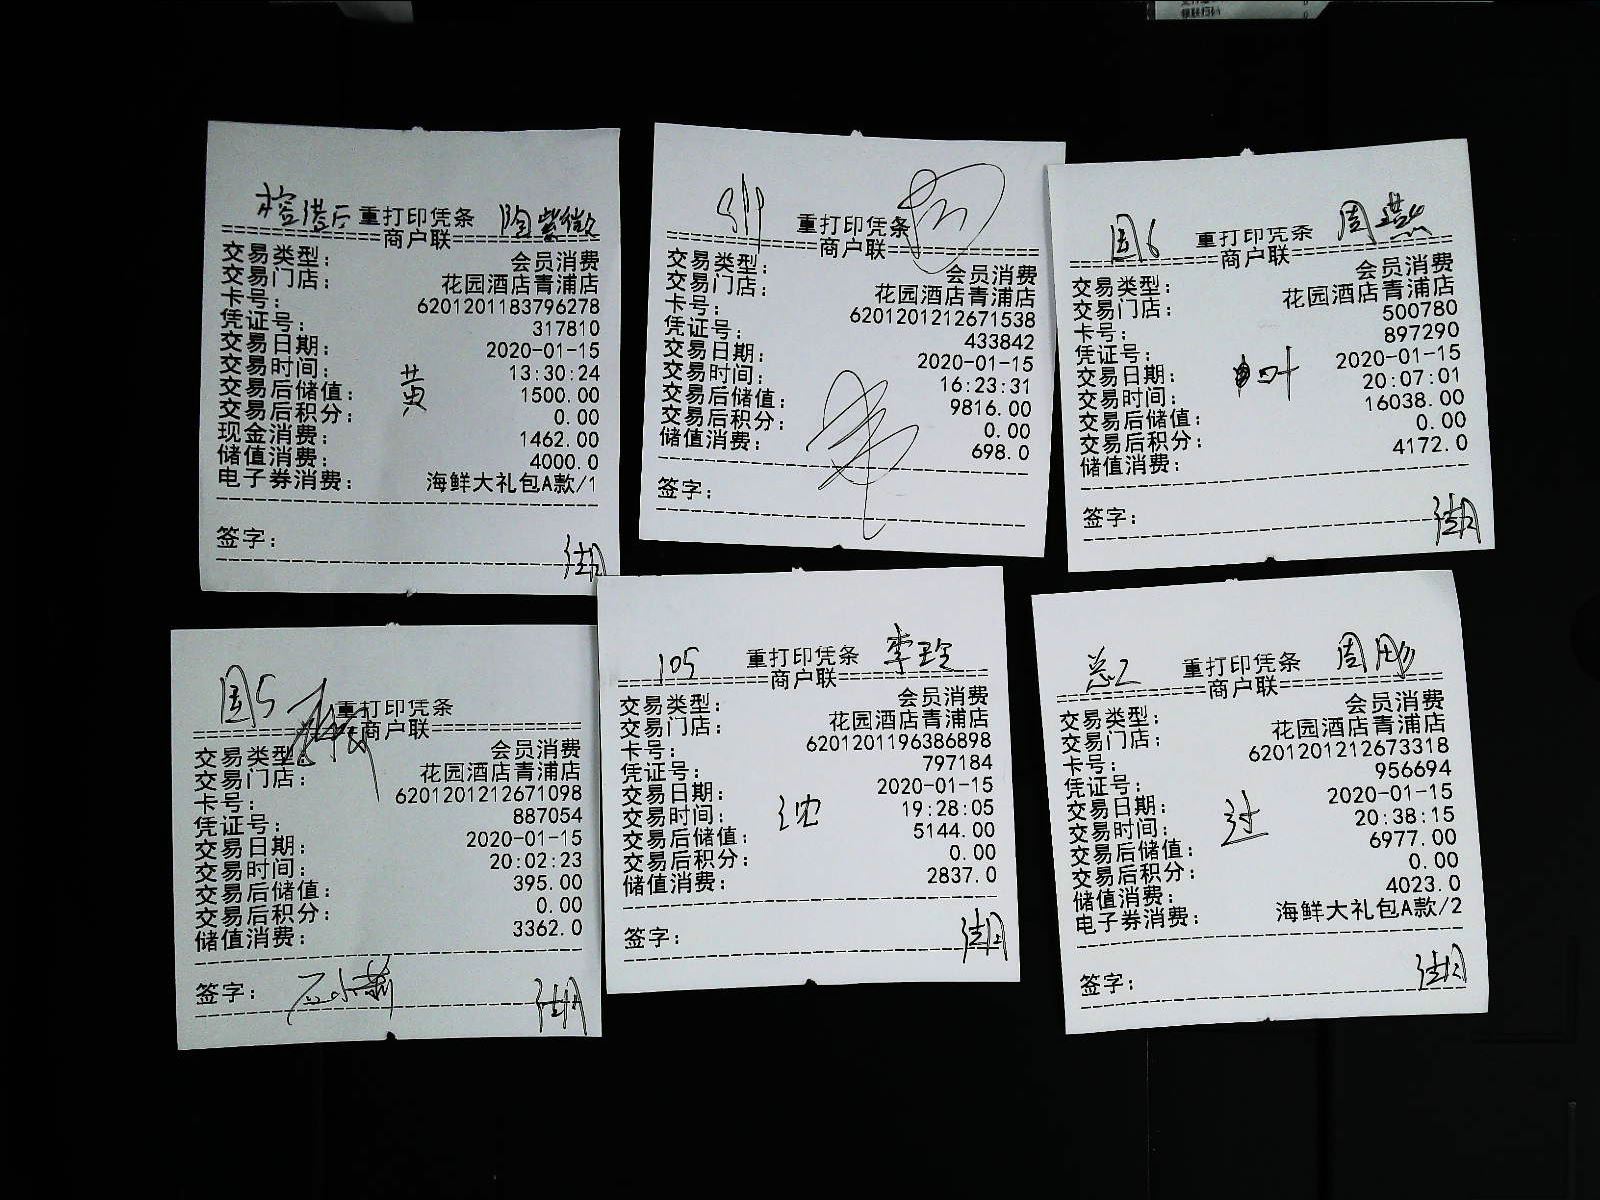 重打印凭条 陶紫微
商户联
交易类型： 会员消费
交易门店： 花园酒店青浦店
卡号： 6201201183796278
凭证号： 317810
交易日期： 2020-01-15
交易时间： 13:30:24
交易后储值： 1500.00
黄
交易后积分： 0.00
现金消费： 1462.00
储值消费： 4000.0
电子券消费： 海鲜大礼包A款/1
签字：
重打印凭条
商户联
交易类型： 会员消费
交易门店： 花园酒店青浦店
卡号： 6201201212671538
凭证号： 433842
交易日期： 2020-01-15
交易时间： 16:23:31
交易后储值： 9816.00
交易后积分： 0.00
储值消费： 698.0
签字：
园6 重打印凭条 周燕
商户联
交易类型： 会员消费
交易门店： 花园酒店青浦店
卡号： 500780
凭证号： 897290
交易日期： 2020-01-15
交易时间： 20:07:01
交易后储值： 16038.00
交易后积分： 0.00
储值消费： 4172.0
签字：
园5 重打印凭条
商户联
交易类型： 会员消费
交易门店： 花园酒店青浦店
卡号： 6201201212671098
凭证号： 887054
交易日期： 2020-01-15
交易时间： 20:02:23
交易后储值： 395.00
交易后积分： 0.00
储值消费： 3362.0
签字：
105 重打印凭条 李玲
商户联
交易类型： 会员消费
交易门店： 花园酒店青浦店
卡号： 6201201196386898
凭证号： 797184
交易日期： 2020-01-15
交易时间： 19:28:05
沈
交易后储值： 5144.00
交易后积分： 0.00
储值消费： 2837.0
签字：
总2 重打印凭条 周刚
商户联
交易类型： 会员消费
交易门店： 花园酒店青浦店
卡号： 6201201212673318
凭证号： 956694
交易日期： 2020-01-15
交易时间： 20:38:15
交易后储值： 6977.00
交易后积分： 0.00
储值消费： 4023.0
电子券消费： 海鲜大礼包A款/2
签字：